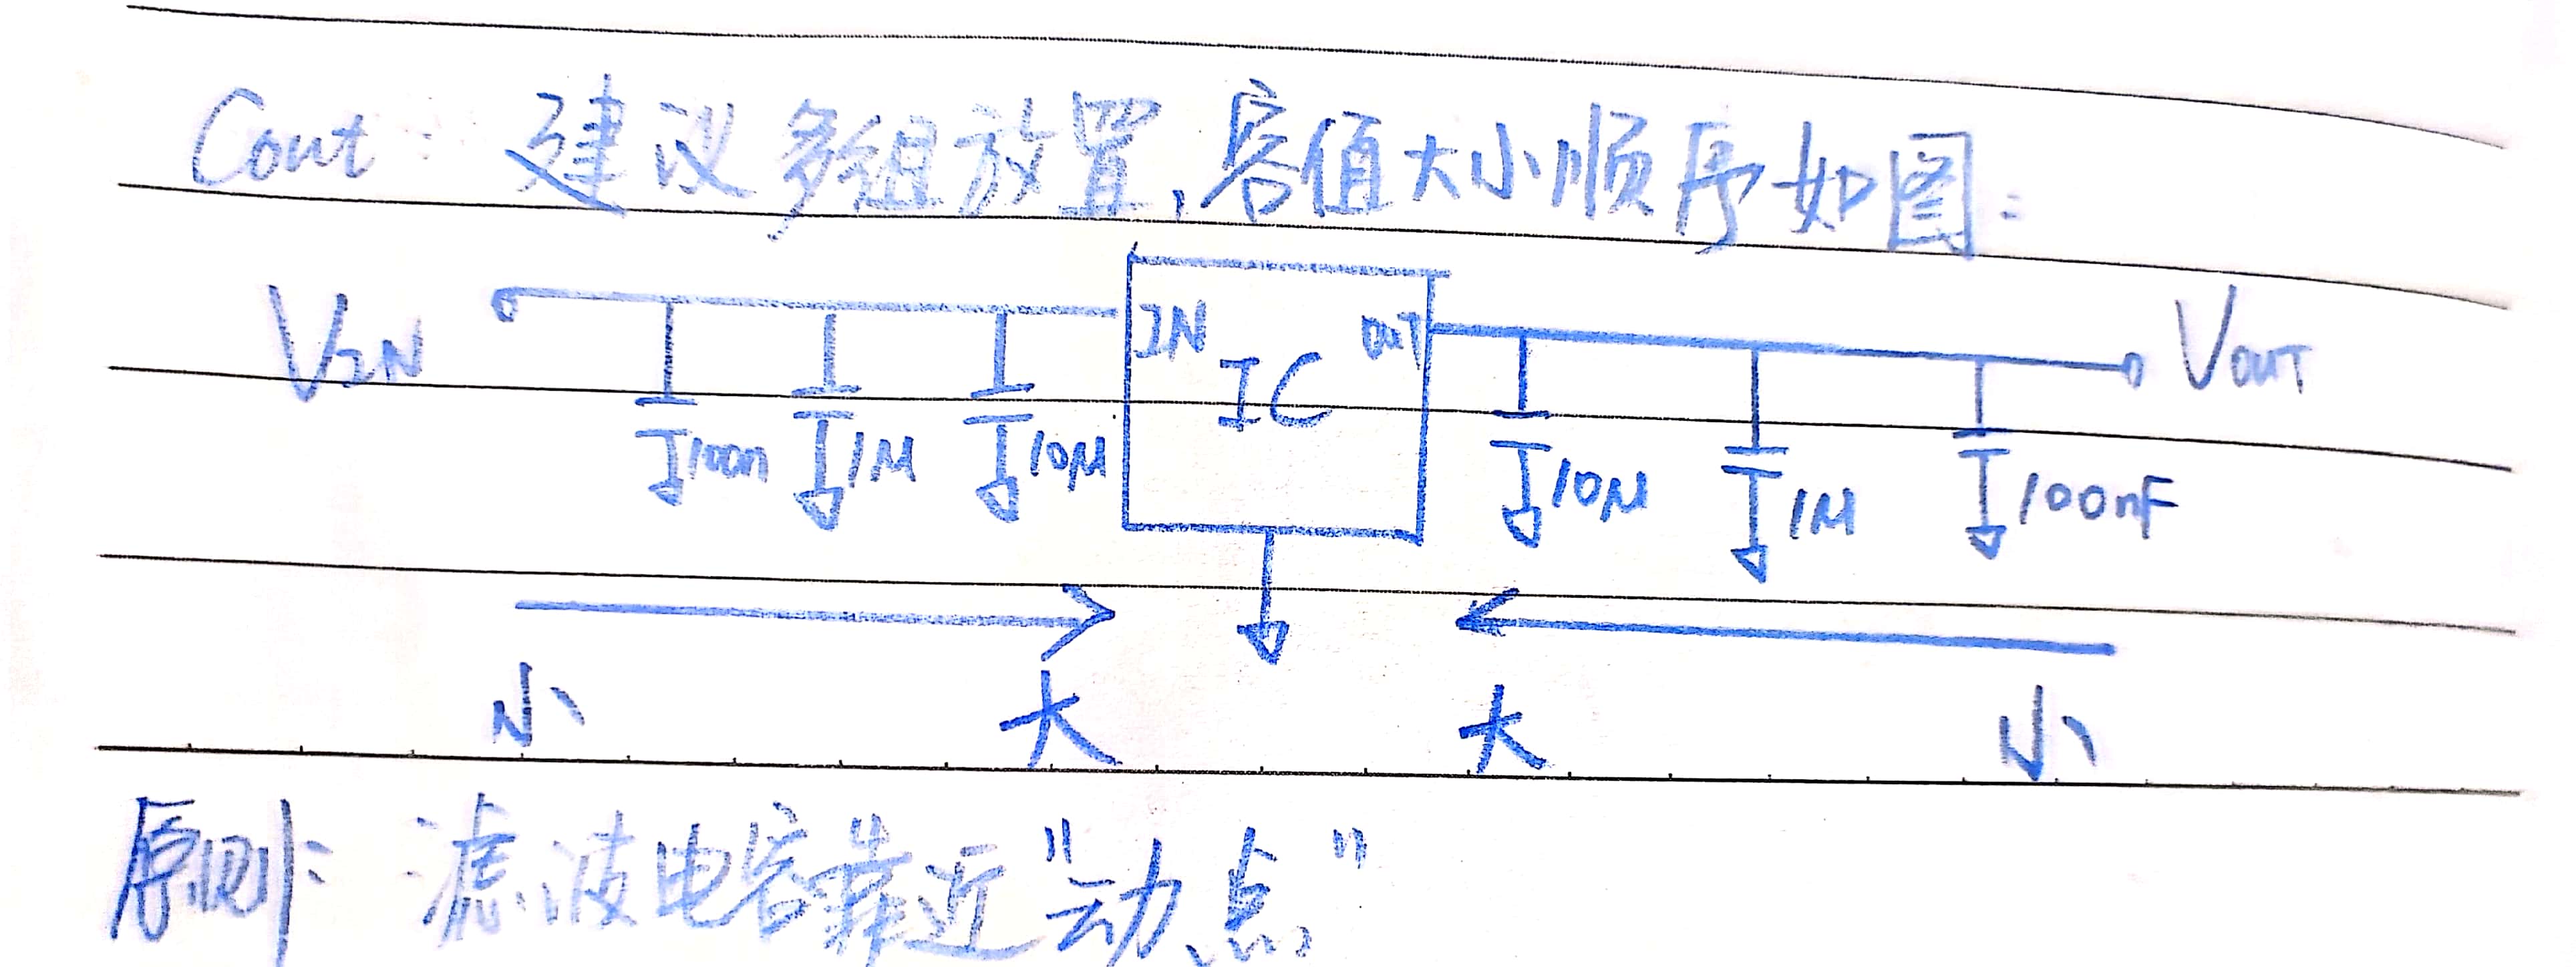 Cout: 建议多组放置,容值大小顺序如图:
VIN IN IC OUT VOUT
100n 1μ 10μ 10μ 1μ 100nF
小 大 大 小
原则: 滤波电容靠近"动点"